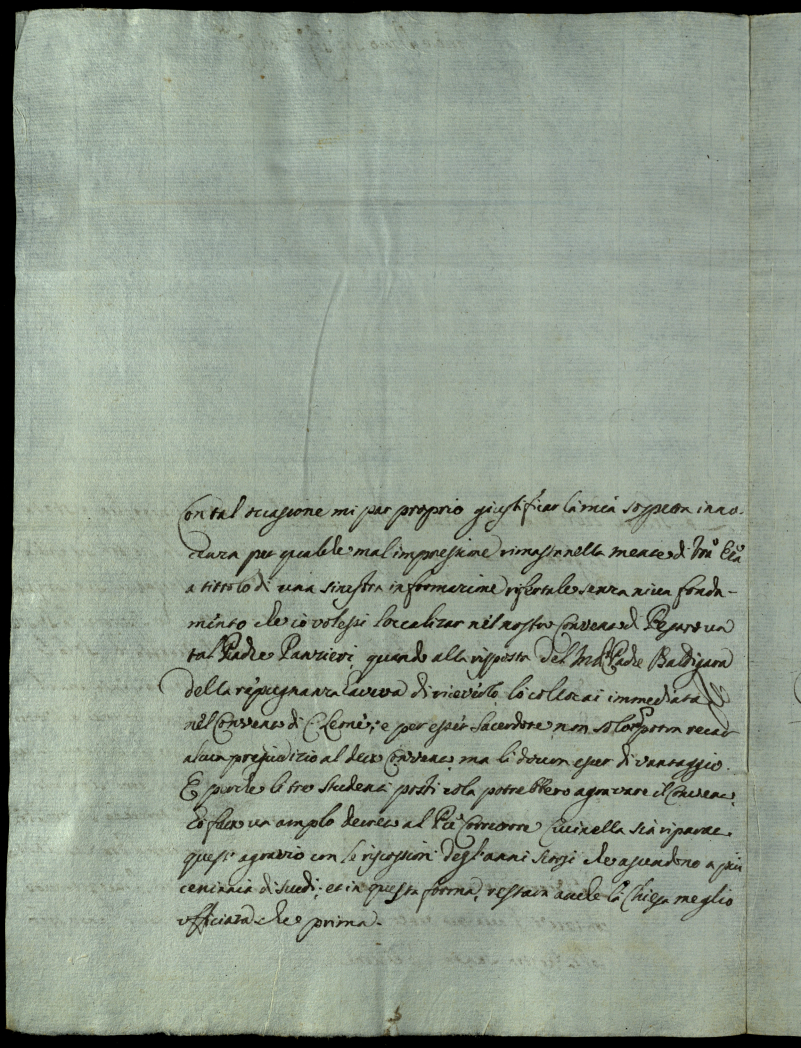 Con tal occasione mi par proprio giustificar la mia sospetta inno-
cenza per qualche mal'impressione rimasta nella mente di
a tittolo di una sinistra informazione senza niun fonda-
mento che io volessi localizar nel nostro Convento di Pesaro un
tal Padre Panzieri, quando alla risposta del Padre Baldigara
della repugnanza haveva di riceverlo, lo collocai immediata
nel Convento di e per esser sacerdote, non solo recar
alcun prejudizio al detto Convento, ma li doveva esser di vantaggio.
E perche li tre studenti posti cola potrebbero agravare il Convento,
un amplo decreto al Correttore Civinella sia riparare
questo agravio con le riscossioni degl'anni scorsi che ascendono a più
centinaia di scudi; et in questa forma, restava anche la Chiesa meglio
officiata che prima.